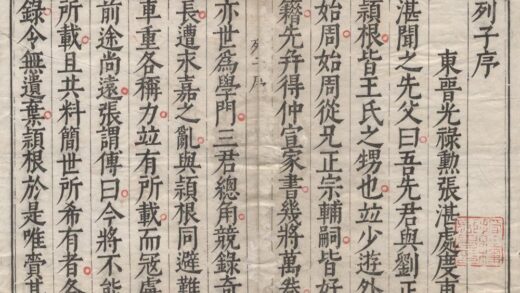 列子序
東晉光祿勲張湛處度東
湛聞之先父曰吾先君與劉正
頴根皆王氏之甥也竝少遊外
始周始周從兄正宗輔嗣皆好
籍先幷得仲宣家書幾將萬卷
列子序
亦世爲學門三君總角競錄奇
長遭永嘉之亂與頴根同避難
車重各稱力竝有所載而冦虜
前途尚遠張謂傅曰今將不能
所載且共料簡世所希有者各
錄令無遺棄頴根於是唯賫其